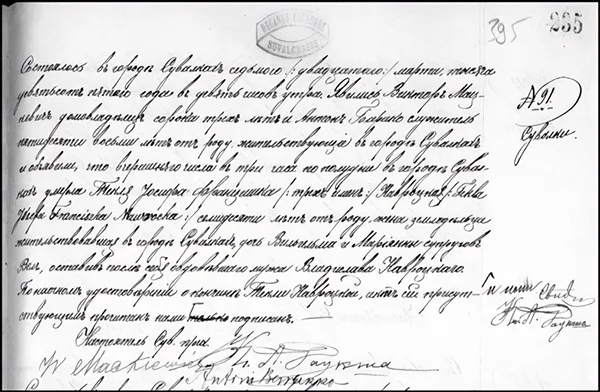 395
235
№ 91
Сувалки.
Состоялось въ городѣ Сувалкахъ седьмого /:двадцатого:/ марта, тысяча
девятьсотъ пятого года въ девять часовъ утра. Явились Викторъ Мац-
кевичъ домовладѣлецъ сорока трехъ лѣтъ и Антонъ служитель
пятидесяти восьми лѣтъ отъ роду, жительствующіе въ городѣ Сувалкахъ
и объявили, что вчерашняго числа въ три часа по полудни въ городѣ Сувал-
кахъ умерла Текля Іосифа Францишка /:трехъ именъ:/ Навроцкая /:Tekla
Józefa Franciszka Nawrocka:/ семидесяти лѣтъ отъ роду, жена землевладѣльца
жительствовавшая въ городѣ Сувалкахъ, дочь Вильгельма и Маріанны супруговъ
оставивъ послѣ себя овдовѣвшаго мужа Владислава Навроцкаго.
По наочномъ удостовѣреніи о кончинѣ Текли Навроцкой, актъ сей присут-
ствующимъ прочитанъ нами подписанъ.
Настоятель Сув. прих.
W Mackiewicz
Antoni